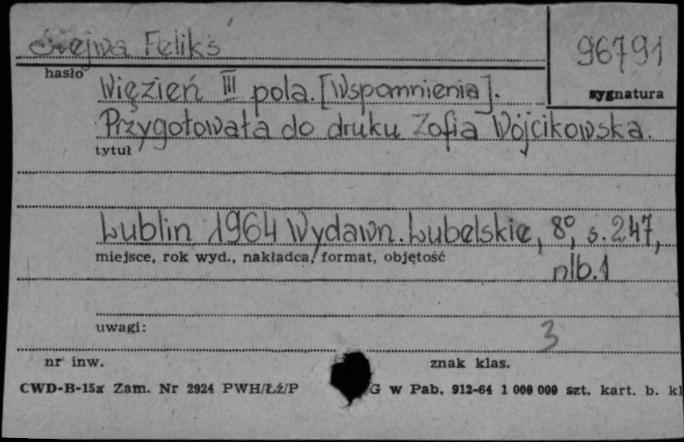 Siejwa Feliks
96791
hasło
sygnatura
Więzień III pola. [Wspomnienia].
Przygotowała do druku Zofia Wójcikowska.
tytuł
Lublin 1964 Wydawn. Lubelskie, 8°, s. 247,
miejsce, rok wyd., nakładca, format, objętość
nlb. 1
uwagi:
3
nr inw.
znak klas.
CWD-B-15a Zam. Nr 2924 PWH/Łź/P G w Pab. 912-64 1 000 000 szt. kart. b. kl